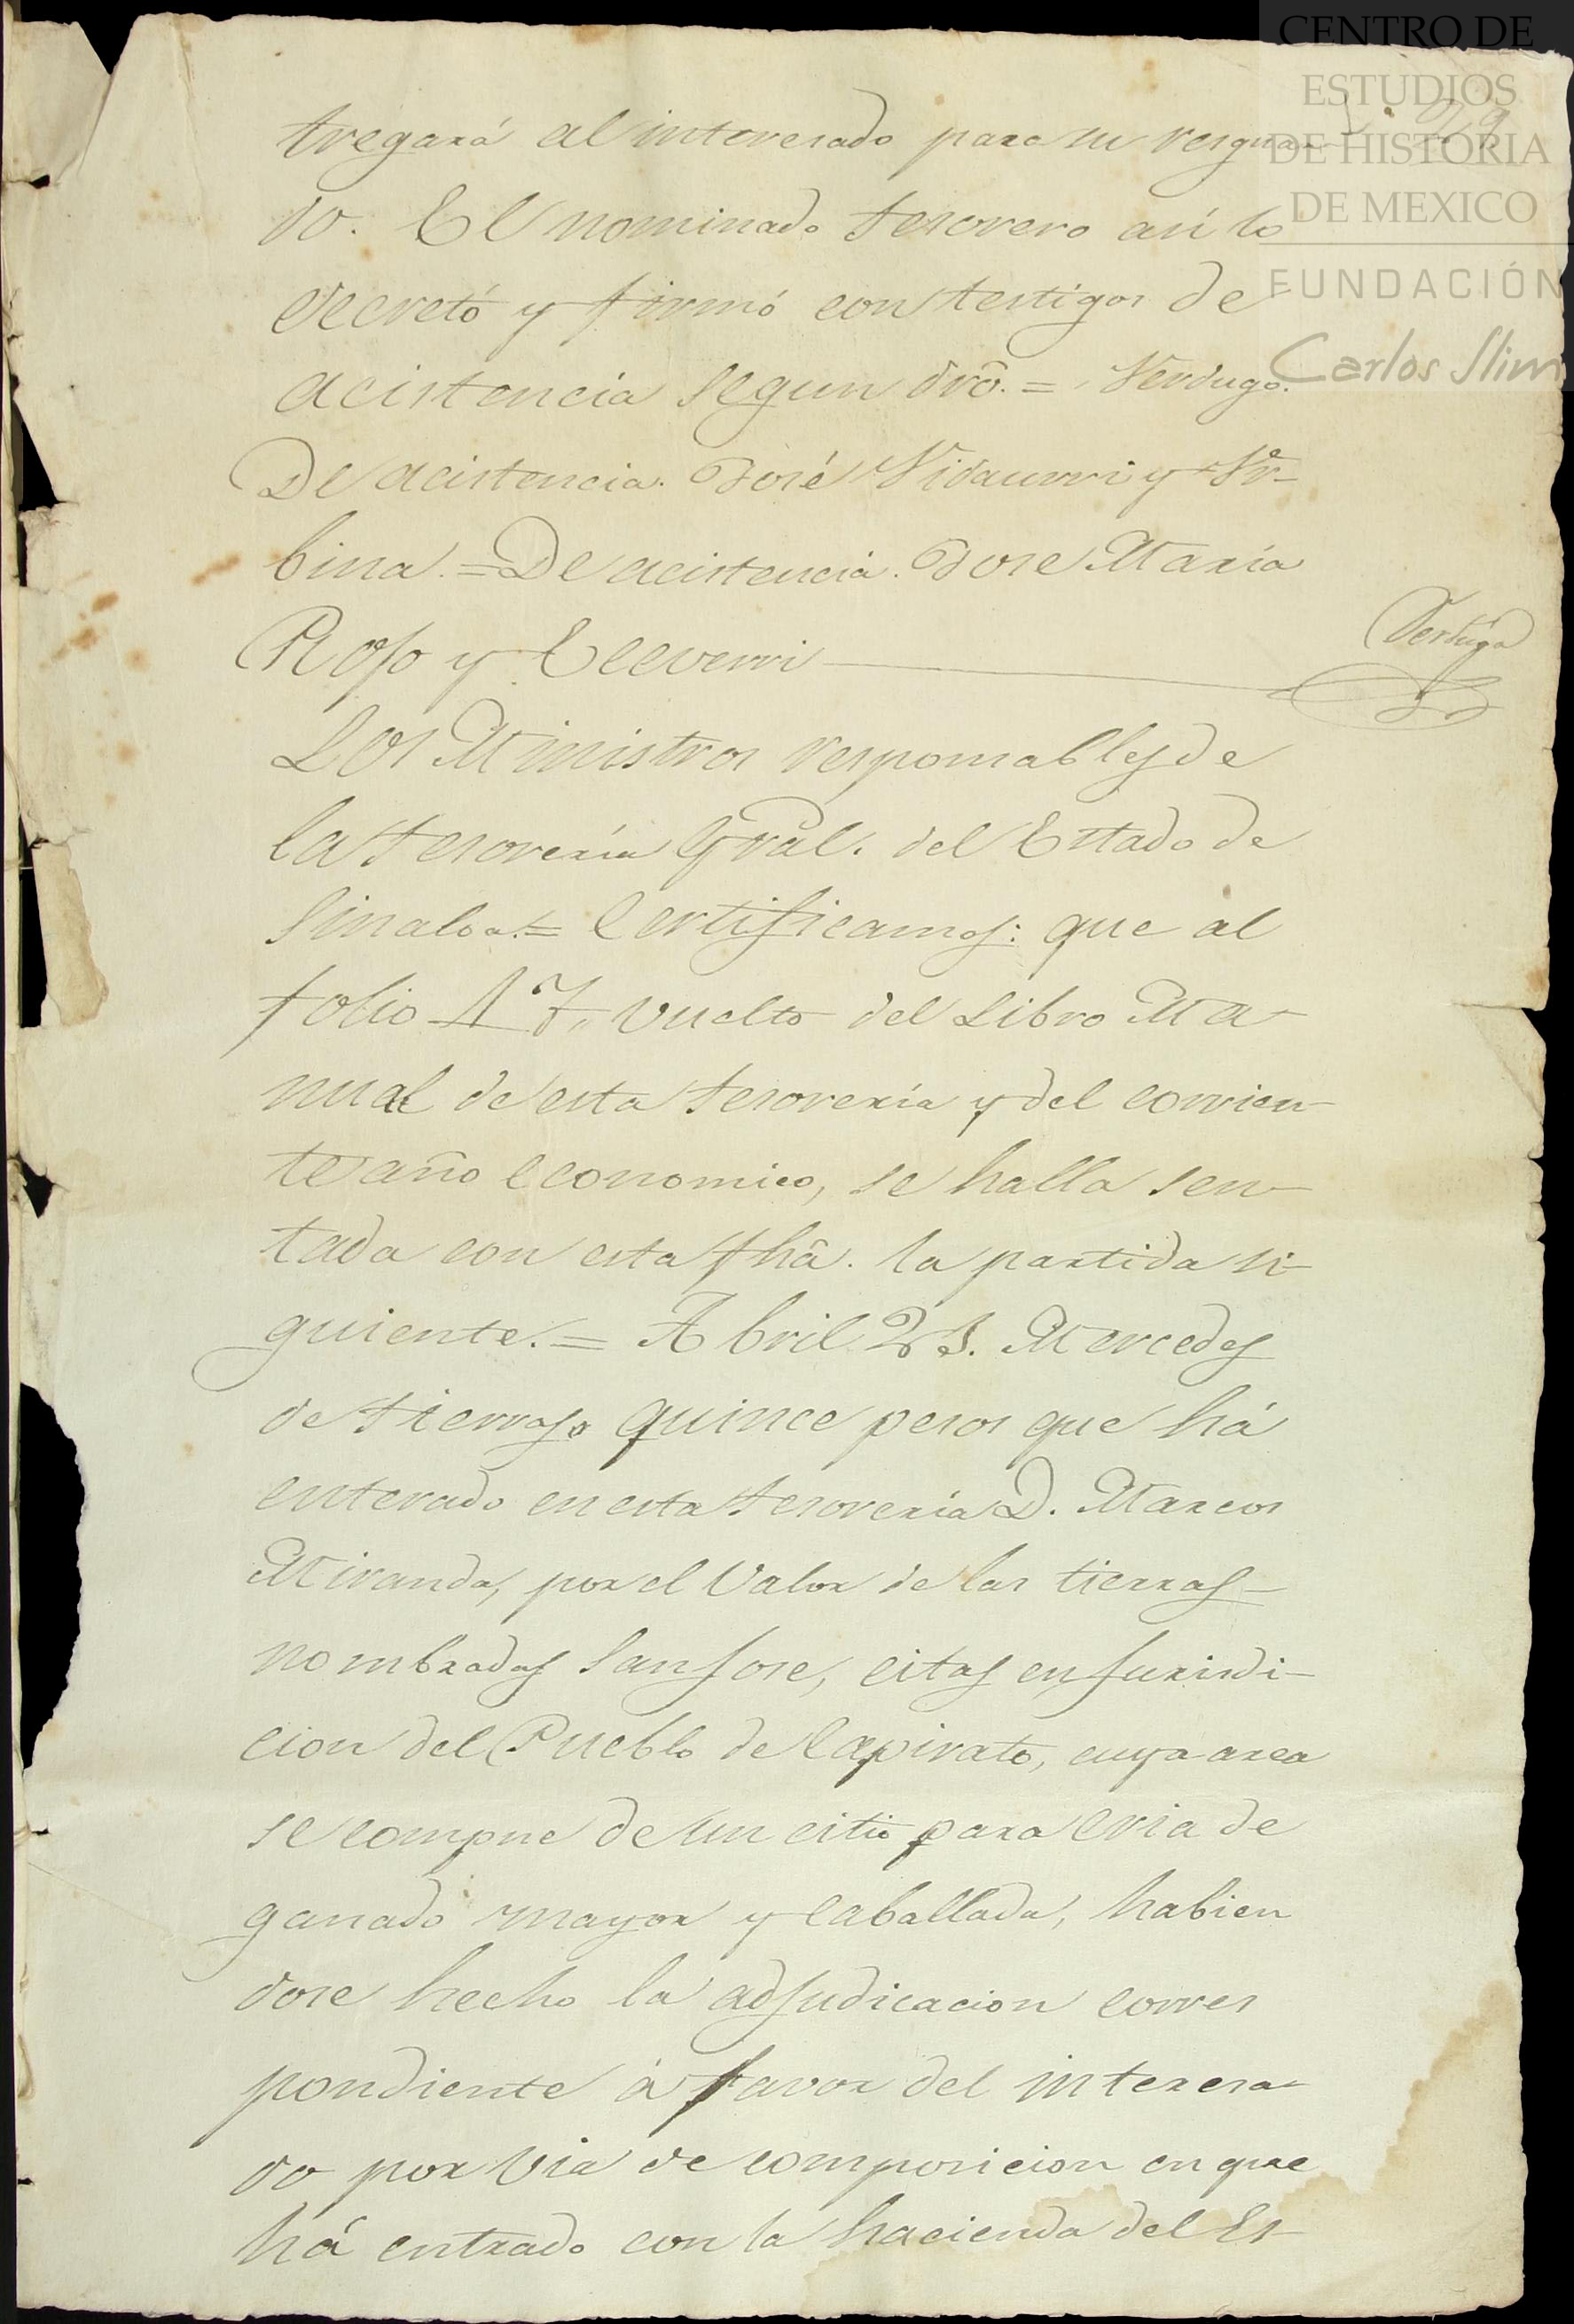 CENTRO DE
ESTUDIOS
DE HISTORIA
DE MEXICO
FUNDACIÓN
Carlos Slim
tregará al interesado para su resguar-
do. El nominado tesorero así lo
decretó y firmó con testigos de
acistencia segun dro̅. = Verdugo.
De acistencia. José Vidaurri y Ur-
bina. = De acistencia. Jose María
Rojo y Ecceverri
Verdugo
Los Ministros responsables de
la tesorería Gral. del Estado de
Sinaloa. = Certificamos: que al
folio 17, vuelto del Libro Ma-
nual de esta tesorería y del corrien-
te año economico, se halla sen-
tada con esta fhâ. la partida si-
guiente. = Abril 23. Mercedes
de tierras quince pesos que há
enterado en esta tesorería D. Marcos
Miranda, por el valor de las tierras
nombradas San Jose, citas en Jurisdi-
cion del Pueblo de Capirato, cuya area
se compne de un citio para cria de
ganado mayor y caballada, habien
dose hecho la adjudicacion corres
pondiente á favor del interesa-
do por via de composicion en que
há entrado con la hacienda del Es-